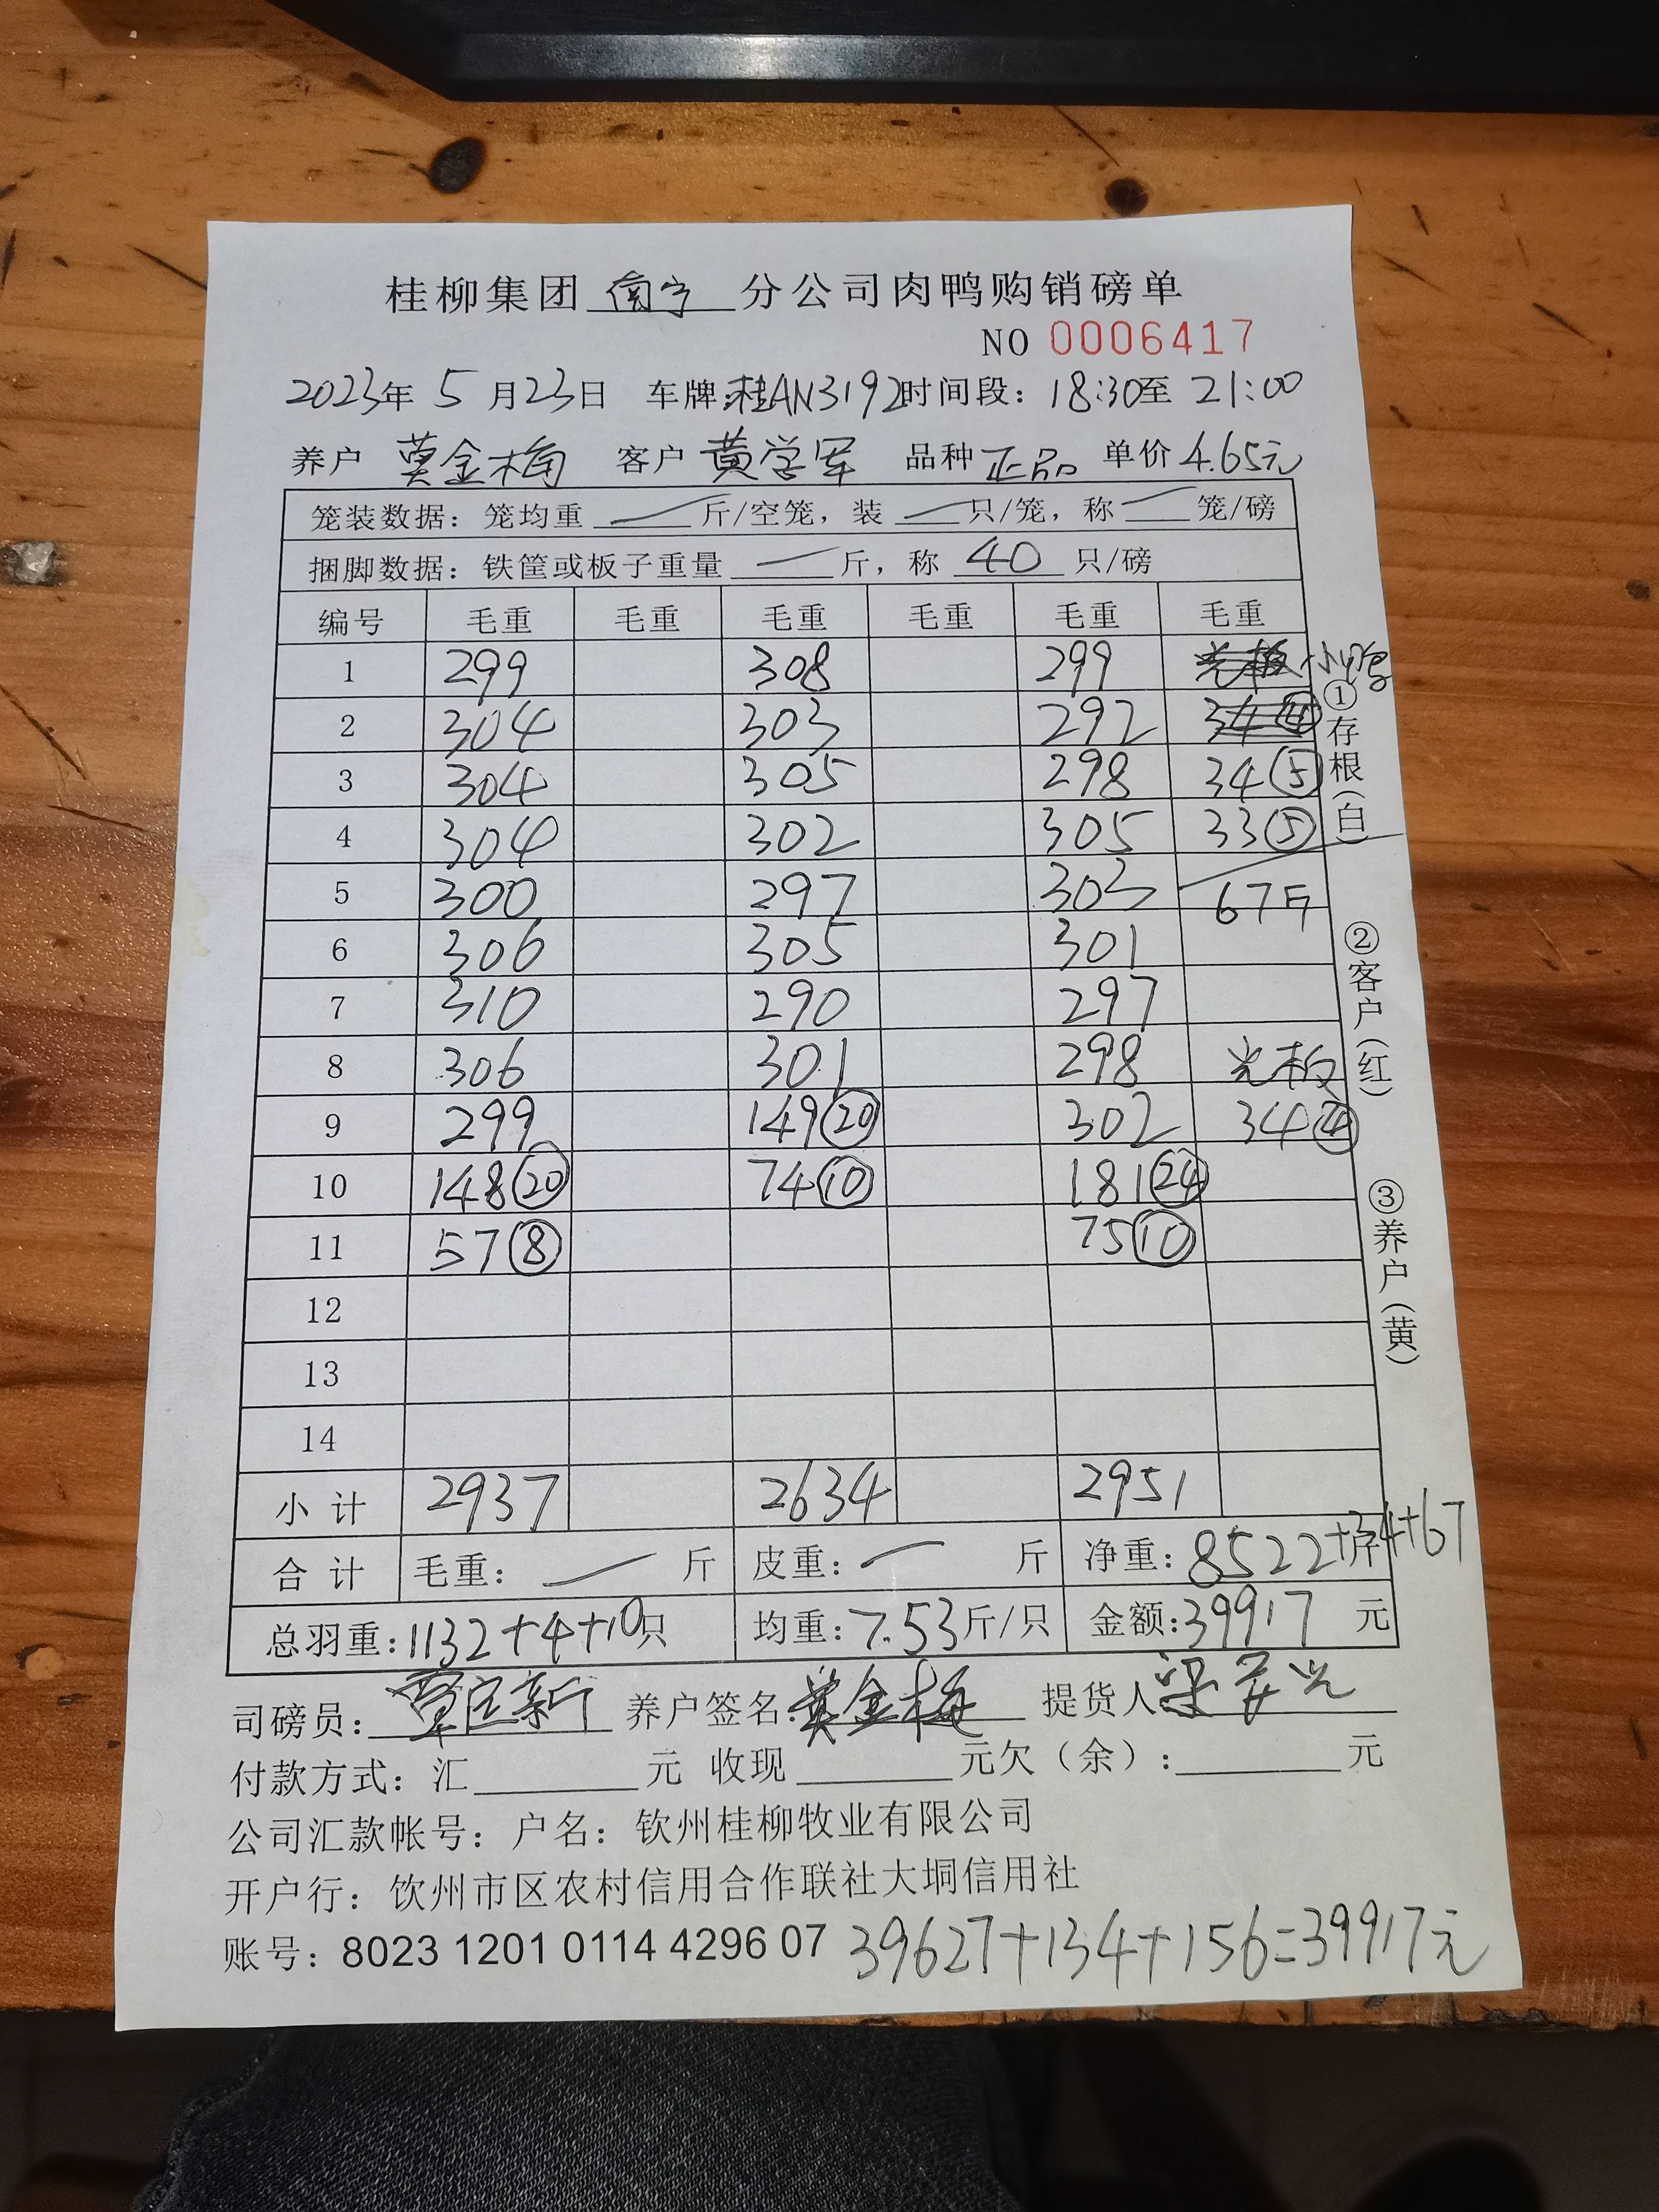 桂柳集团 南宁 分公司肉鸭购销磅单
NO 0006417
2023年 5 月23日 车牌:桂AN3192 时间段: 18:30至 21:00
养户 莫金梅 客户 黄学军 品种 正品 单价 4.65元
笼装数据: 笼均重 — 斤/空笼, 装 — 只/笼, 称 — 笼/磅
捆脚数据: 铁筐或板子重量 — 斤, 称 40 只/磅
编号 毛重 毛重 毛重 毛重 毛重 毛重
1 299 308 299 小鸭
2 304 303 292 34④
3 304 305 298 34⑤
4 304 302 305 33⑤
5 300 297 303 67斤
6 306 305 301
7 310 290 297
8 306 301 298 光板
9 299 149⑳ 302 34④
10 148⑳ 74⑩ 181㉔
11 57⑧ 75⑩
12
13
14
小计 2937 2634 2951
合计 毛重: — 斤 皮重: — 斤 净重: 8522+34+67
总羽重: 1132+4+10只 均重: 7.53斤/只 金额: 39917 元
司磅员: 新 养户签名: 莫金梅 提货人
付款方式: 汇 元 收现 元欠(余): 元
公司汇款帐号: 户名: 钦州桂柳牧业有限公司
开户行: 饮州市区农村信用合作联社大垌信用社
账号: 8023 1201 0114 4296 07 39627+134+156=39917元
①存根(白)
②客户(红)
③养户(黄)